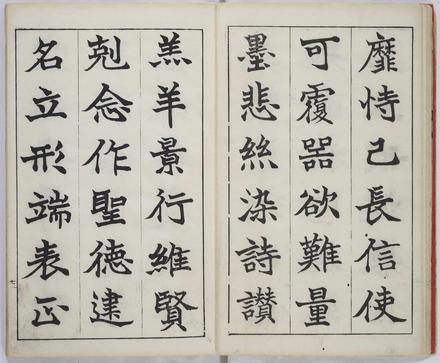 靡恃己長信使
可覆噐欲難量
墨悲絲染詩讚
羔羊景行維賢
剋念作聖徳建
名立形端表正